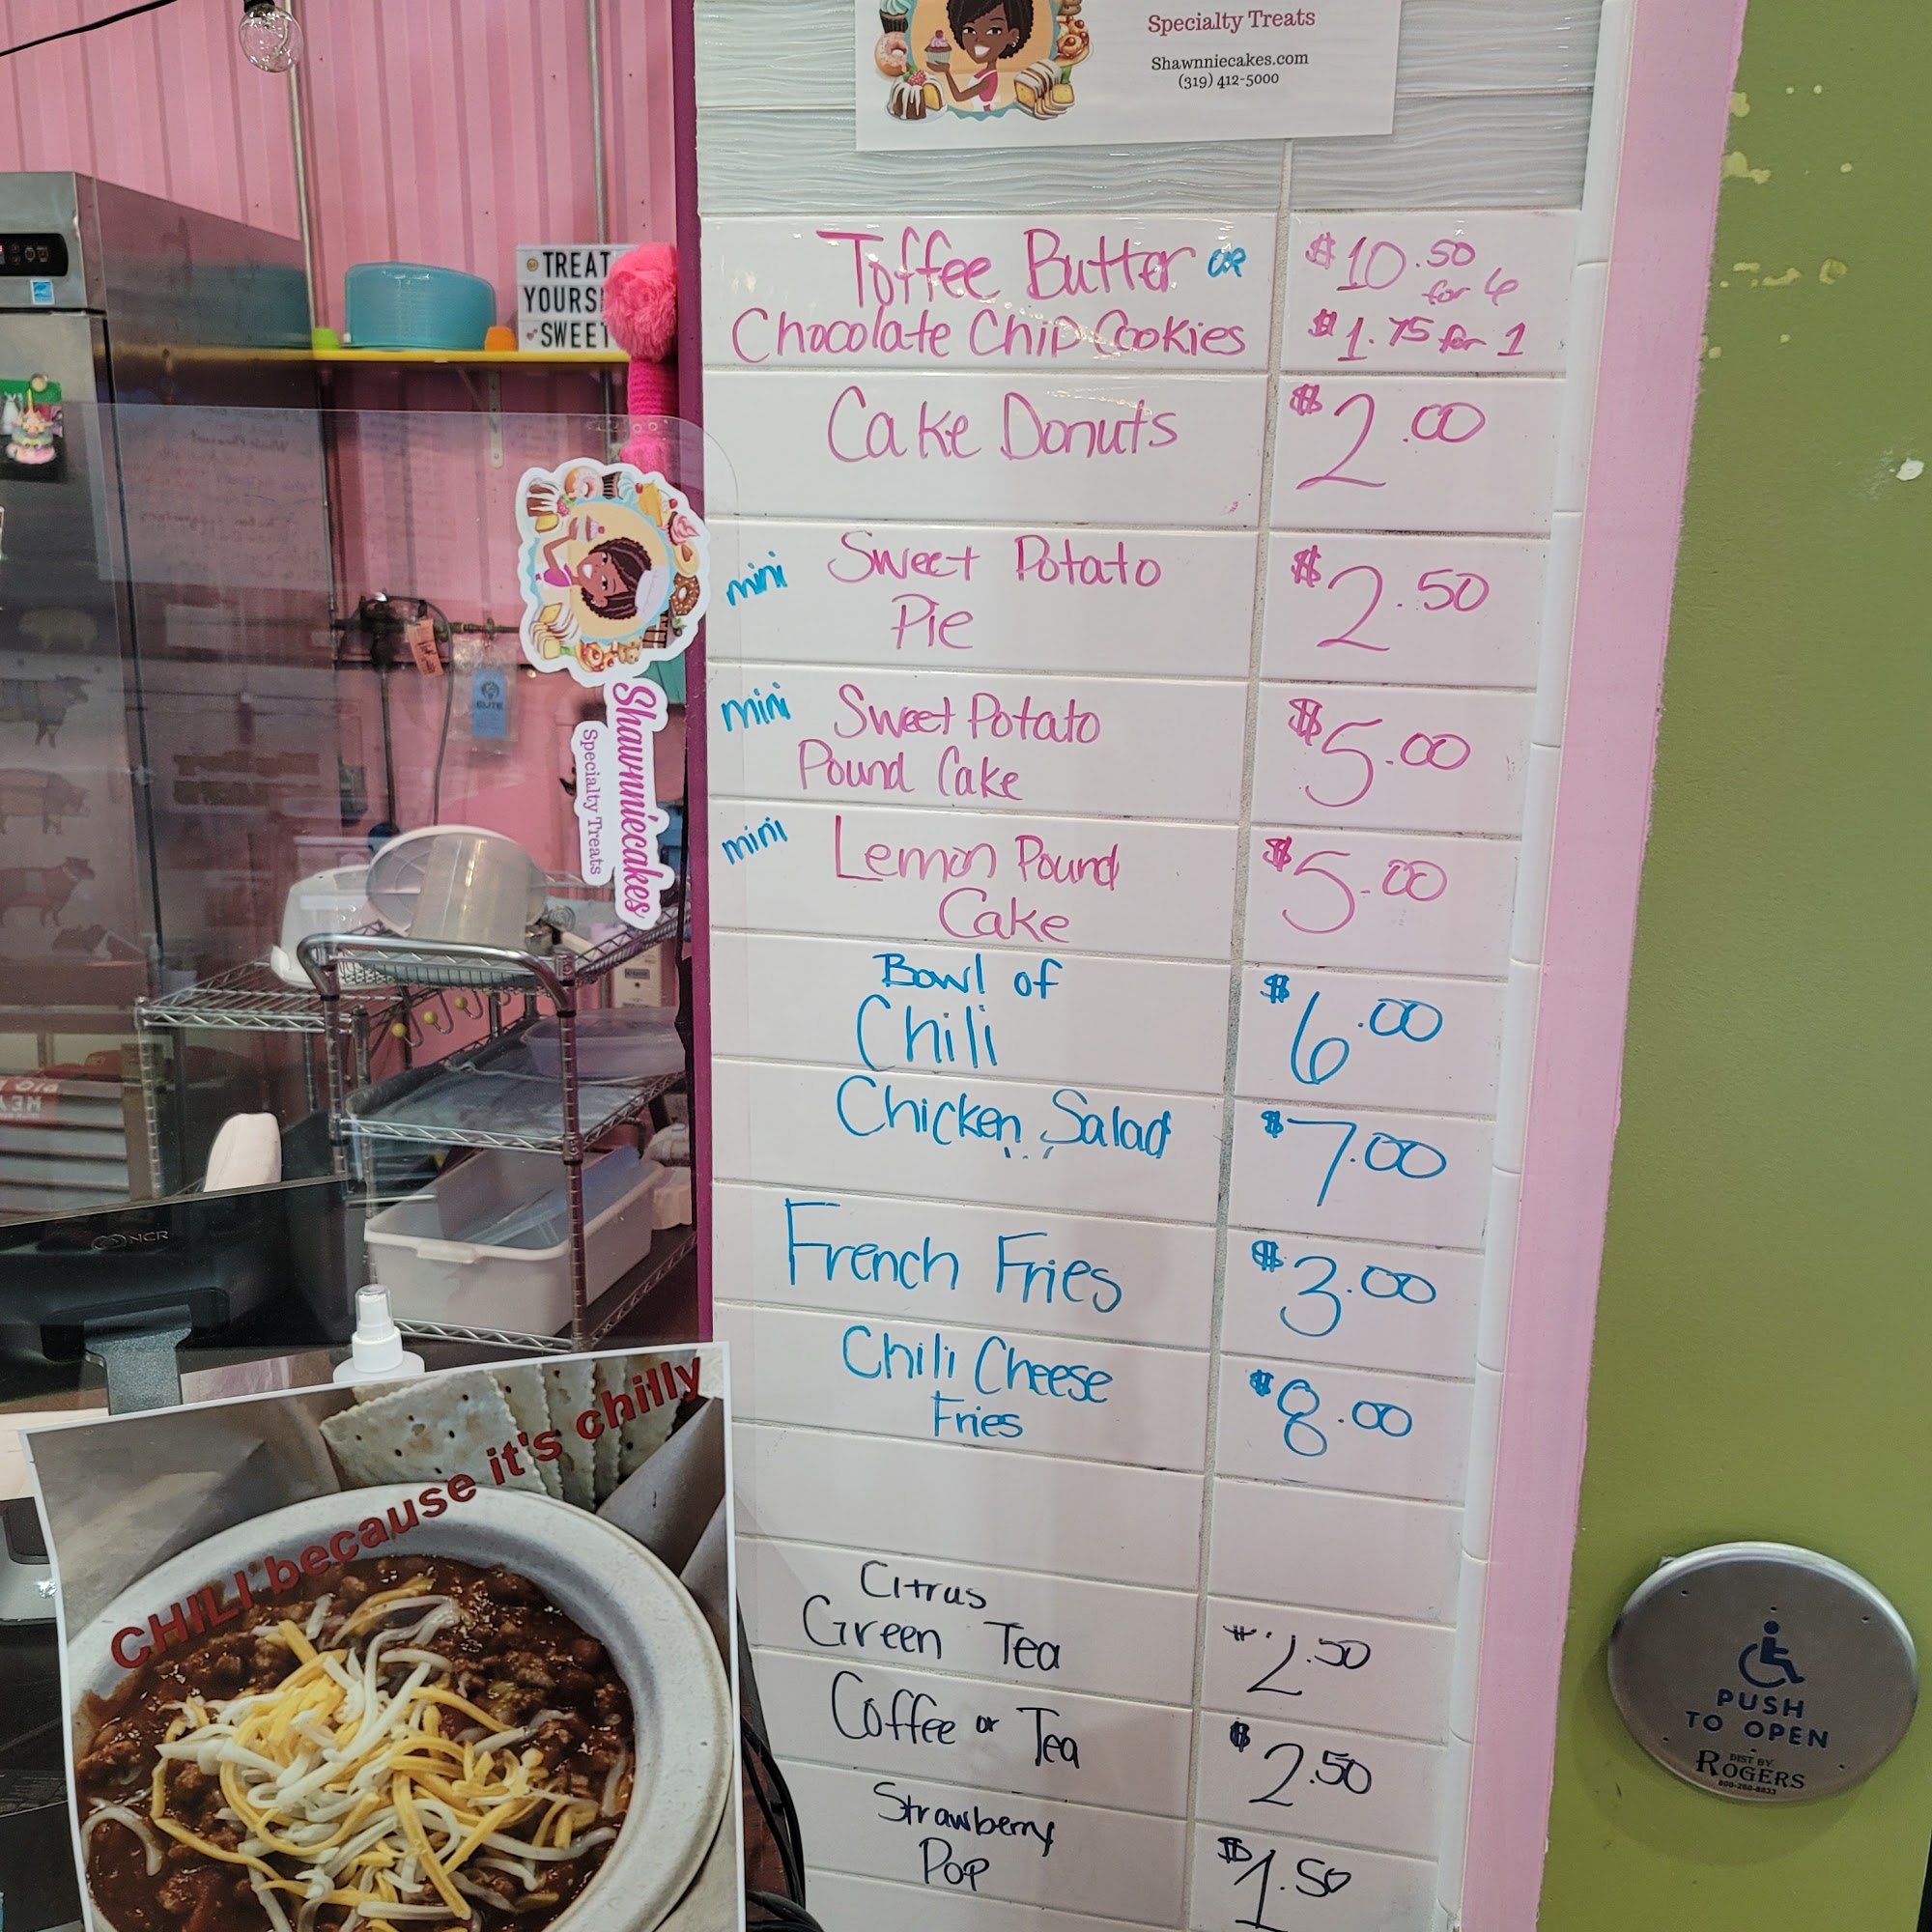 Specialty Treats
Shawnniecakes.com
(319) 412-5000
TREAT
YOURS
SWEET
Toffee Butter OR
Chocolate Chip Cookies
$10.50
for 6
$1.75 for 1
Cake Donuts
$2.00
mini Sweet Potato
Pie
$2.50
mini Sweet Potato
Pound Cake
$5.00
mini Lemon Pound
Cake
$5.00
Bowl of
Chili
$6.00
Chicken Salad
$7.00
French Fries
$3.00
Chili Cheese
Fries
$8.00
Citrus
Green Tea
$2.50
Coffee or Tea
$2.50
Strawberry
Pop
$1.50
Shawnniecakes
Specialty Treats
NCR
CHILI because it's chilly
PUSH
TO OPEN
DIST BY
ROGERS